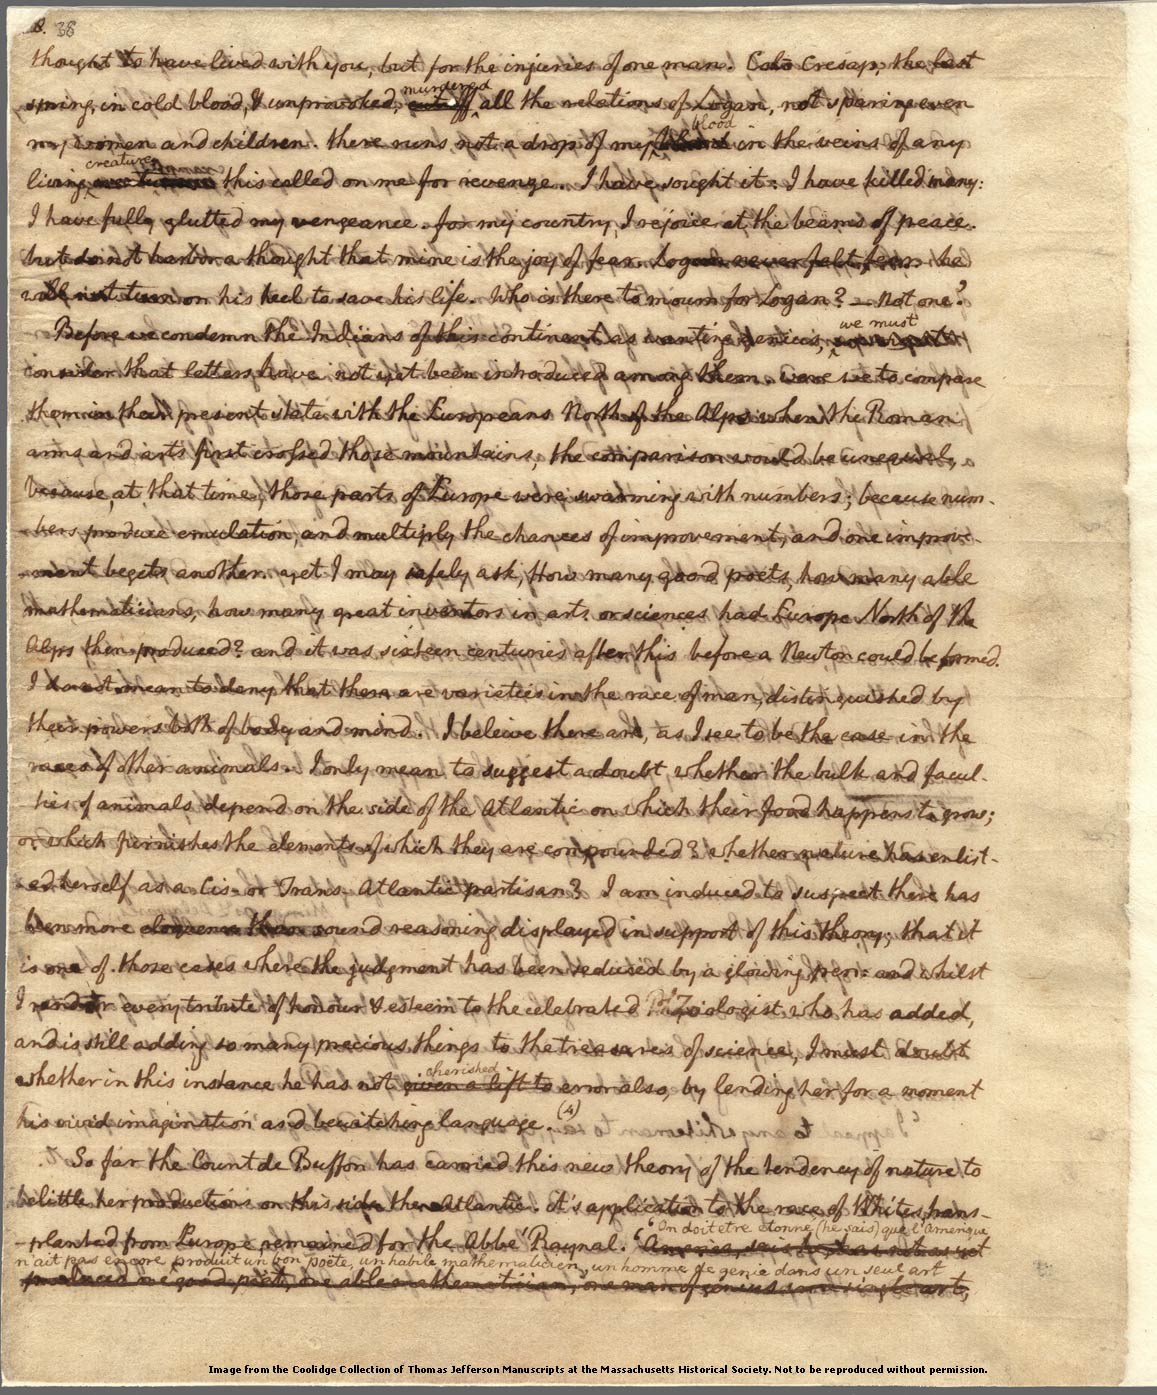 8. 38
thought to have lived with you, but for the injuries of one man. Colo Cresap, the last
murdered
spring, in cold blood, & unprovoked, cut off all the relations of Logan, not sparing even
blood
my women and children. there runs not a drop of my in the veins of any
creature
living this called on me for revenge. I have sought it: I have killed many:
I have fully glutted my vengeance. for my country, I rejoice at the beams of peace.
but do not harbor a thought that mine is the joy of fear. Logan never felt fear. he
will not turn on his heel to save his life. Who is there to mourn for Logan? — Not one?
we must
Before we condemn the Indians of this continent as wanting genius,
consider that letters have not yet been introduced among them. were we to compare
them in their present state with the Europeans North of the Alps when the Roman
arms and arts first crossed those mountains, the comparison would be unequal,
because, at that time, those parts of Europe were swarming with numbers; because num-
-bers produce emulation, and multiply the chances of improvement, and one improve-
-ment begets another. yet I may safely ask, How many good poets, how many able
mathematicians, how many great inventors in arts or sciences had Europe North of the
Alps then produced? and it was sixteen centuries after this before a Newton could be formed.
I do not mean to deny that there are varieties in the race of man, distinguished by
their powers both of body and mind. I beleive there are, as I see to be the case in the
races of other animals. I only mean to suggest a doubt whether the bulk and facul-
ties of animals depend on the side of the Atlantic on which their food happens to grow;
or which furnishes the elements of which they are compounded? whether nature has enlist-
-ed herself as a Cis- or Trans-Atlantic partisan? I am induced to suspect there has
been more eloquence than sound reasoning displayed in support of this theory; that it
is one of those cases where the judgment has been seduced by a glowing pen: and whilst
I render every tribute of honour & esteem to the celebrated Zoologist who has added,
and is still adding so many precious things to the treasures of science, I must doubt
cherished
whether in this instance he has not given a lift to error also, by lending her for a moment
(4)
his vivid imagination and bewitching language.
So far the Count de Buffon has carried this new theory of the tendency of nature to
belittle her productions on this side the Atlantic. it's application to the race of Whites, trans-
"On doit etre etonné (he says) que l'Amerique
-planted from Europe, remained for the Abbé Raynal. "America, says he, has not as yet
n'ait pas encore produit un bon poëte, un habile mathematicien, un homme de genie dans un seul art
produced one good poet, one able mathematician, one man of genius in a single art,
Image from the Coolidge Collection of Thomas Jefferson Manuscripts at the Massachusetts Historical Society. Not to be reproduced without permission.